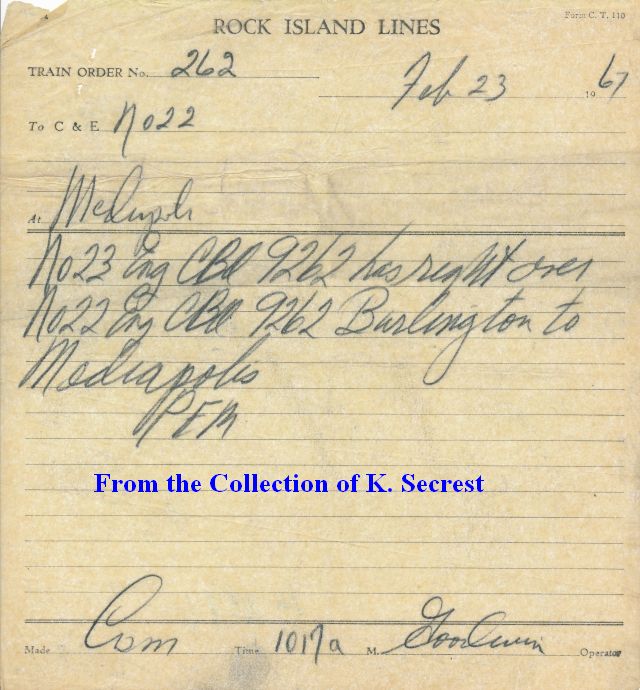 4
Form C. T. 110
ROCK ISLAND LINES
TRAIN ORDER No. 262
Feb 23 1967
To C & E No 22
At Mediapolis
No 23 Eng CB&Q 9262 has right over
No 22 Eng CB&Q 9262 Burlington to
Mediapolis
From the Collection of K. Secrest
Made Com Time 1017a M. Goodwin Operator